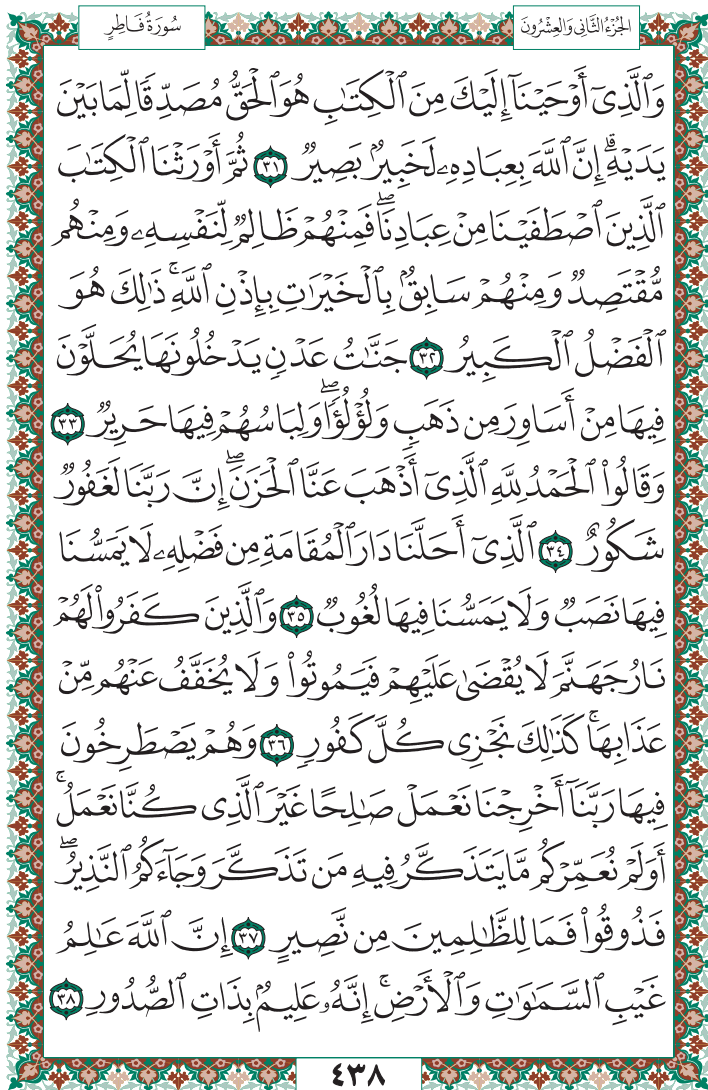 الجُزْءُ الثَّانِي وَالعِشْرُونَ
سُورَةُ فَاطِرٍ
وَٱلَّذِىٓ أَوۡحَيۡنَآ إِلَيۡكَ مِنَ ٱلۡكِتَٰبِ هُوَ ٱلۡحَقُّ مُصَدِّقٗا لِّمَا بَيۡنَ
يَدَيۡهِۗ إِنَّ ٱللَّهَ بِعِبَادِهِۦ لَخَبِيرُۢ بَصِيرٞ ٣١ ثُمَّ أَوۡرَثۡنَا ٱلۡكِتَٰبَ
ٱلَّذِينَ ٱصۡطَفَيۡنَا مِنۡ عِبَادِنَاۖ فَمِنۡهُمۡ ظَالِمٞ لِّنَفۡسِهِۦ وَمِنۡهُم
مُّقۡتَصِدٞ وَمِنۡهُمۡ سَابِقُۢ بِٱلۡخَيۡرَٰتِ بِإِذۡنِ ٱللَّهِۚ ذَٰلِكَ هُوَ
ٱلۡفَضۡلُ ٱلۡكَبِيرُ ٣٢ جَنَّٰتُ عَدۡنٖ يَدۡخُلُونَهَا يُحَلَّوۡنَ
فِيهَا مِنۡ أَسَاوِرَ مِن ذَهَبٖ وَلُؤۡلُؤٗاۖ وَلِبَاسُهُمۡ فِيهَا حَرِيرٞ ٣٣
وَقَالُواْ ٱلۡحَمۡدُ لِلَّهِ ٱلَّذِىٓ أَذۡهَبَ عَنَّا ٱلۡحَزَنَۖ إِنَّ رَبَّنَا لَغَفُورٞ
شَكُورٌ ٣٤ ٱلَّذِىٓ أَحَلَّنَا دَارَ ٱلۡمُقَامَةِ مِن فَضۡلِهِۦ لَا يَمَسُّنَا
فِيهَا نَصَبٞ وَلَا يَمَسُّنَا فِيهَا لُغُوبٞ ٣٥ وَٱلَّذِينَ كَفَرُواْ لَهُمۡ
نَارُ جَهَنَّمَ لَا يُقۡضَىٰ عَلَيۡهِمۡ فَيَمُوتُواْ وَلَا يُخَفَّفُ عَنۡهُم مِّنۡ
عَذَابِهَاۚ كَذَٰلِكَ نَجۡزِى كُلَّ كَفُورٖ ٣٦ وَهُمۡ يَصۡطَرِخُونَ
فِيهَا رَبَّنَآ أَخۡرِجۡنَا نَعۡمَلۡ صَٰلِحًا غَيۡرَ ٱلَّذِى كُنَّا نَعۡمَلُۚ
أَوَلَمۡ نُعَمِّرۡكُم مَّا يَتَذَكَّرُ فِيهِ مَن تَذَكَّرَ وَجَآءَكُمُ ٱلنَّذِيرُۖ
فَذُوقُواْ فَمَا لِلظَّٰلِمِينَ مِن نَّصِيرٍ ٣٧ إِنَّ ٱللَّهَ عَٰلِمُ
غَيۡبِ ٱلسَّمَٰوَٰتِ وَٱلۡأَرۡضِۚ إِنَّهُۥ عَلِيمُۢ بِذَاتِ ٱلصُّدُورِ ٣٨
٤٣٨